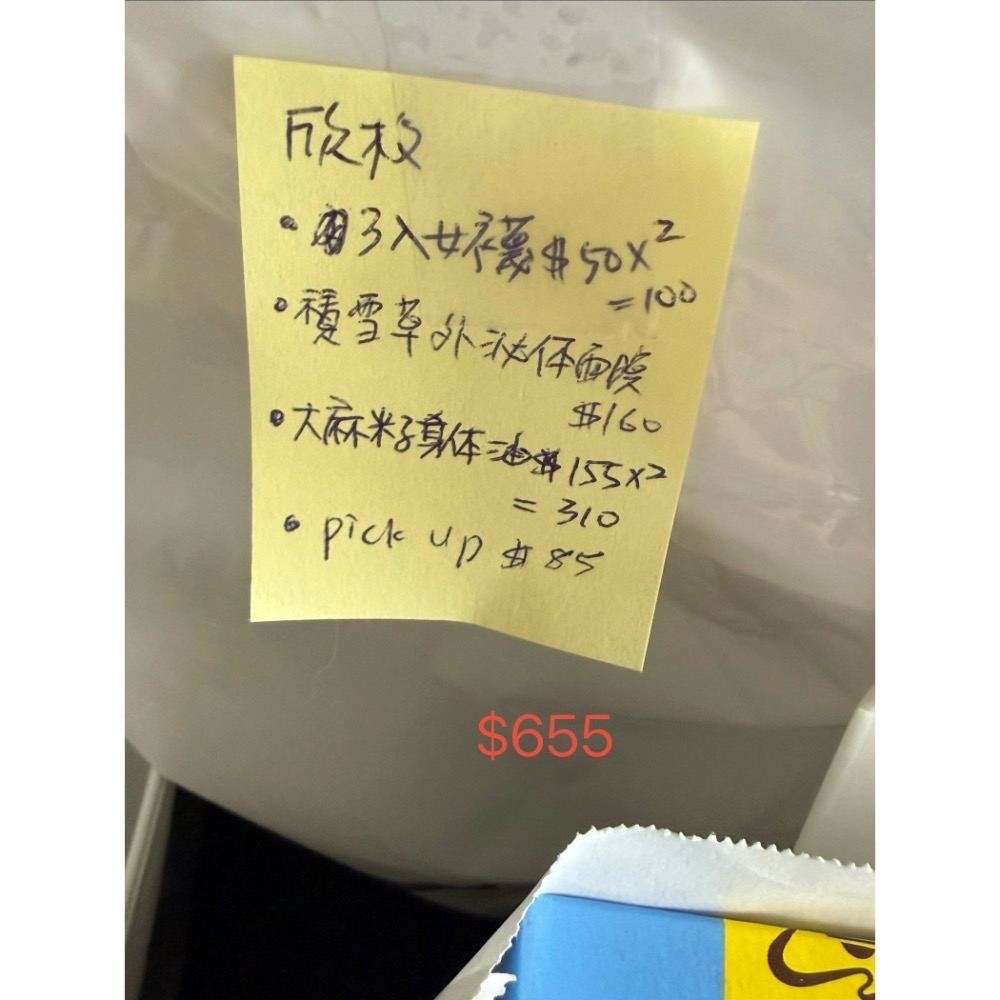 欣枚
• 3入女襪 $50x2
=100
• 積雪草外泌体面膜
$160
• 大麻米子身体油$155x2
= 310
• pick up $85
$655